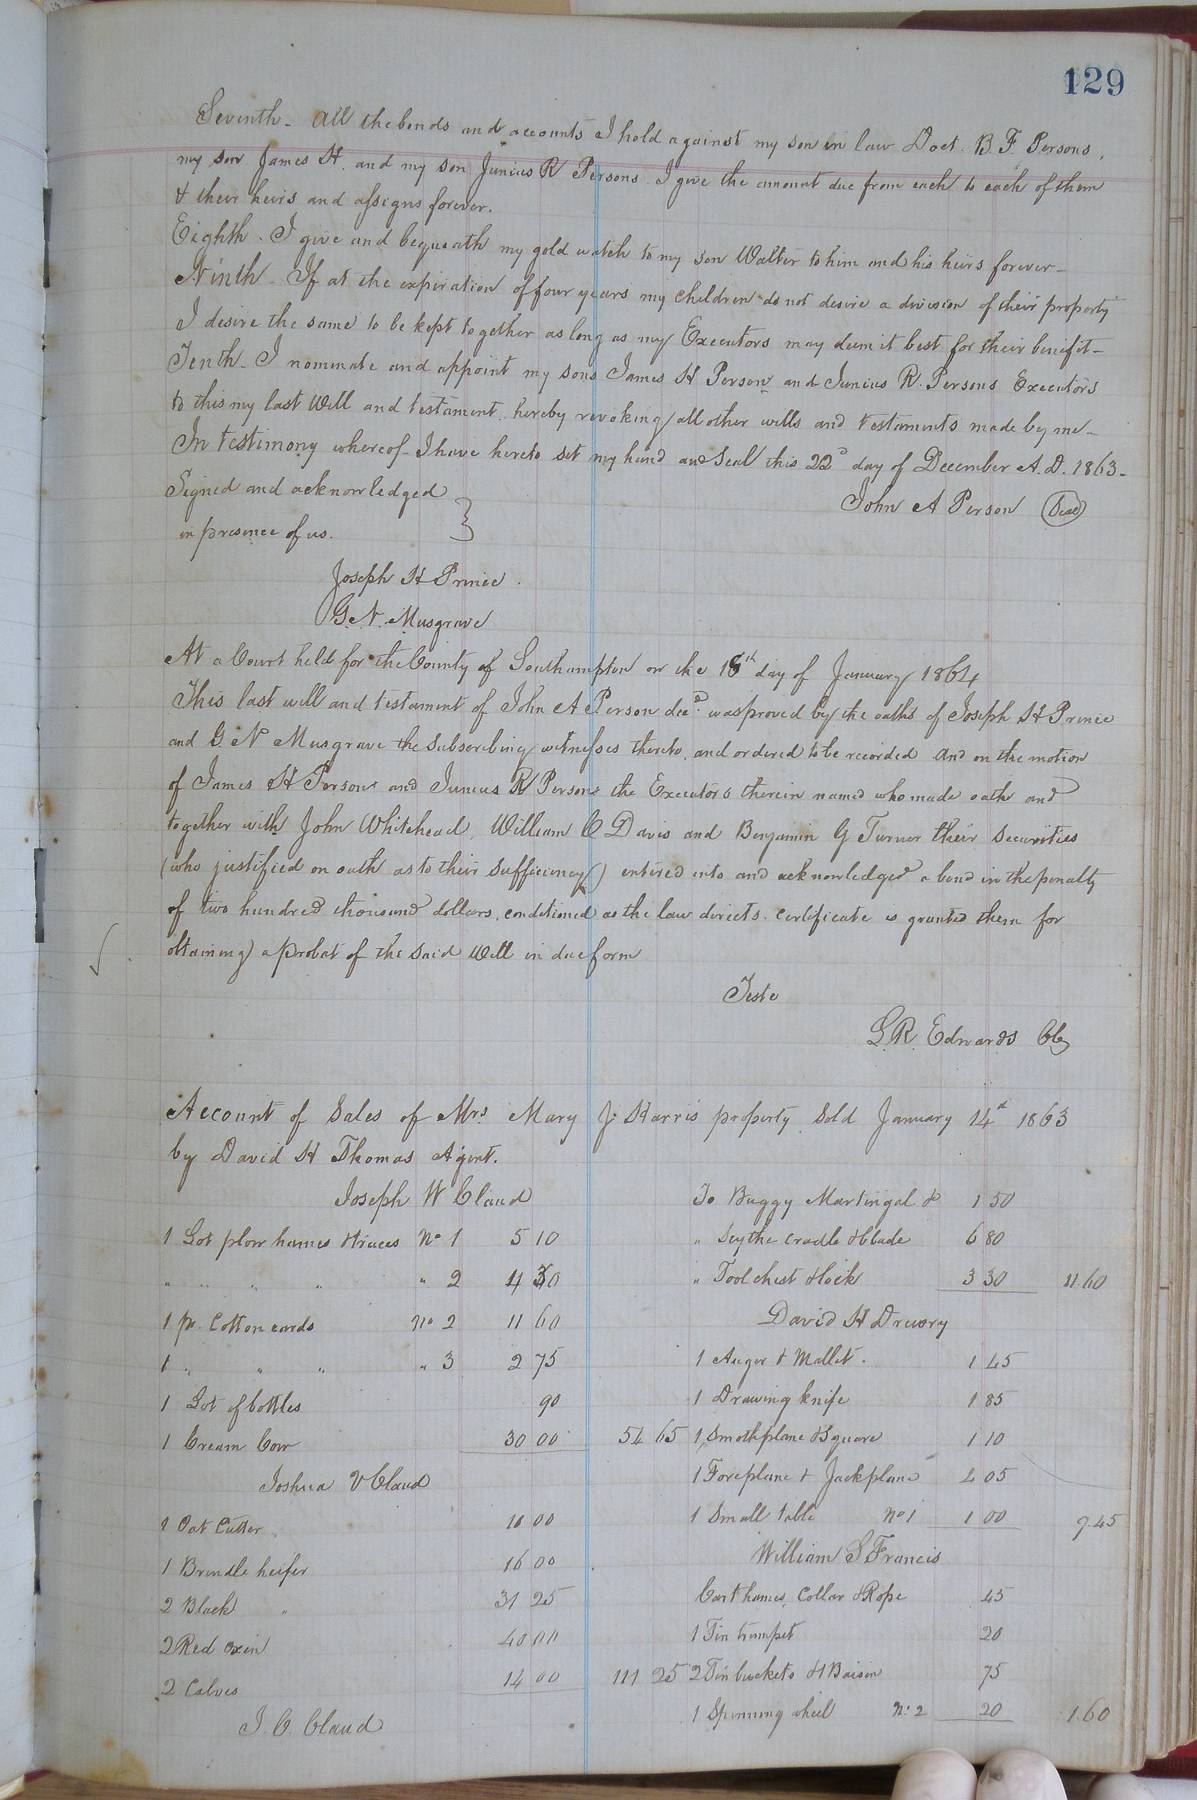 129
Seventh - All the bonds and accounts I hold against my son in law Doct. B. F. Persons,
my son James H. and my son Junius R Persons. I give the amount due from each to each of them
& their heirs and assigns forever.
Eighth. I give and bequeath my gold watch to my son Walter to him and his heirs forever -
Ninth - If at the expiration of four years my children do not desire a division of their property
I desire the same to be kept together as long as my Executors may deem it best for their benefit -
Tenth - I nominate and appoint my sons James H Person and Junius R. Persons Executors
to this my last will and testament, hereby revoking all other wills and testaments made by me -
In testimony whereof I have hereto set my hand and seal this 22d day of December A.D. 1863 -
Signed and acknowledged } John A Person (Seal)
in presence of us.
Joseph H Prince.
G. N. Musgrave
At a Court held for the County of Southampton on the 18th day of January 1864
This last will and testament of John A Person decd. was proved by the oaths of Joseph H Prince
and G. N Musgrave the subscribing witnesses thereto, and ordered to be recorded And on the motion
of James H Persons and Junius R Persons the Executors therein named who made oath and
together with John Whitehead, William C Davis and Benjamin G Turner their securities
(who justified on oath as to their sufficiency) entered into and acknowledged a bond in the penalty
of two hundred thousand dollars, conditioned as the law directs. Certificate is granted them for
obtaining a probat of the said Will in due form
Teste
L. R. Edwards Clk
Account of Sales of Mrs. Mary J. Harris property Sold January 14th 1863
by David H Thomas Agent.
Joseph W Claud
1 Lot plow hames & traces No 1 5 10
" " " " " 2 4 30
1 pr. Cotton cards No 2 11 60
1 " " " " 3 2 75
1 Lot of bottles 90
1 Cream Cow 30 00 54 65
Joshua V Claud
1 Oat Cutter 10 00
1 Brindle heifer 16 00
2 Black " 31 25
2 Red Oxin 40 00
2 Calves 14 00 111 25
J. C. Claud
To Buggy Martingal & 1 50
" Scythe cradle & blade 6 80
" Tool chest & lock 3 30 11.60
David H Drewry
1 Auger & Mallet. 1 45
1 Drawing knife 1 85
1 Smothplane & Square 1 10
1 Foreplane & Jackplane 4 05
1 Small table No 1 1 00 9.45
William S Francis
Cart hames, Collar & Rope 45
1 Tin trumpet 20
2 Tin buckets & 1 Baisin 75
1 Spinning wheel No. 2 20 1.60